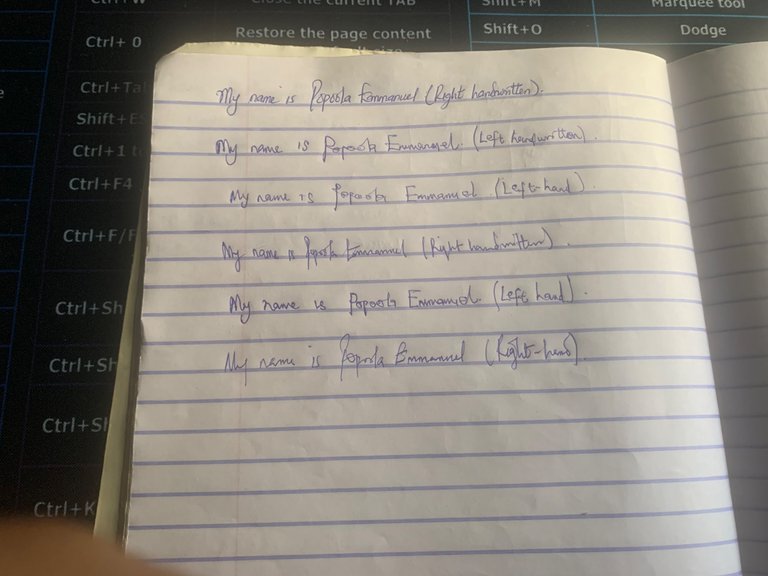 Ctrl+W
Close the current TAB
Shift+M
Marquee tool
Ctrl+ 0
Restore the page content
Shift+O
Dodge
Ctrl+Ta
Shift+Es
Ctrl+1 t
Ctrl+F4
Ctrl+F/F
Ctrl+Sh
Ctrl+SH
Ctrl+SI
Ctrl+K
My name is Popoola Emmanuel (Right handwritten).
My name is Popoola Emmanuel. (Left handwritten).
My name is Popoola Emmanuel (Left-hand).
My name is Popoola Emmanuel (Right handwritten).
My name is Popoola Emmanuel. (Left hand).
My name is Popoola Emmanuel (Right-hand).